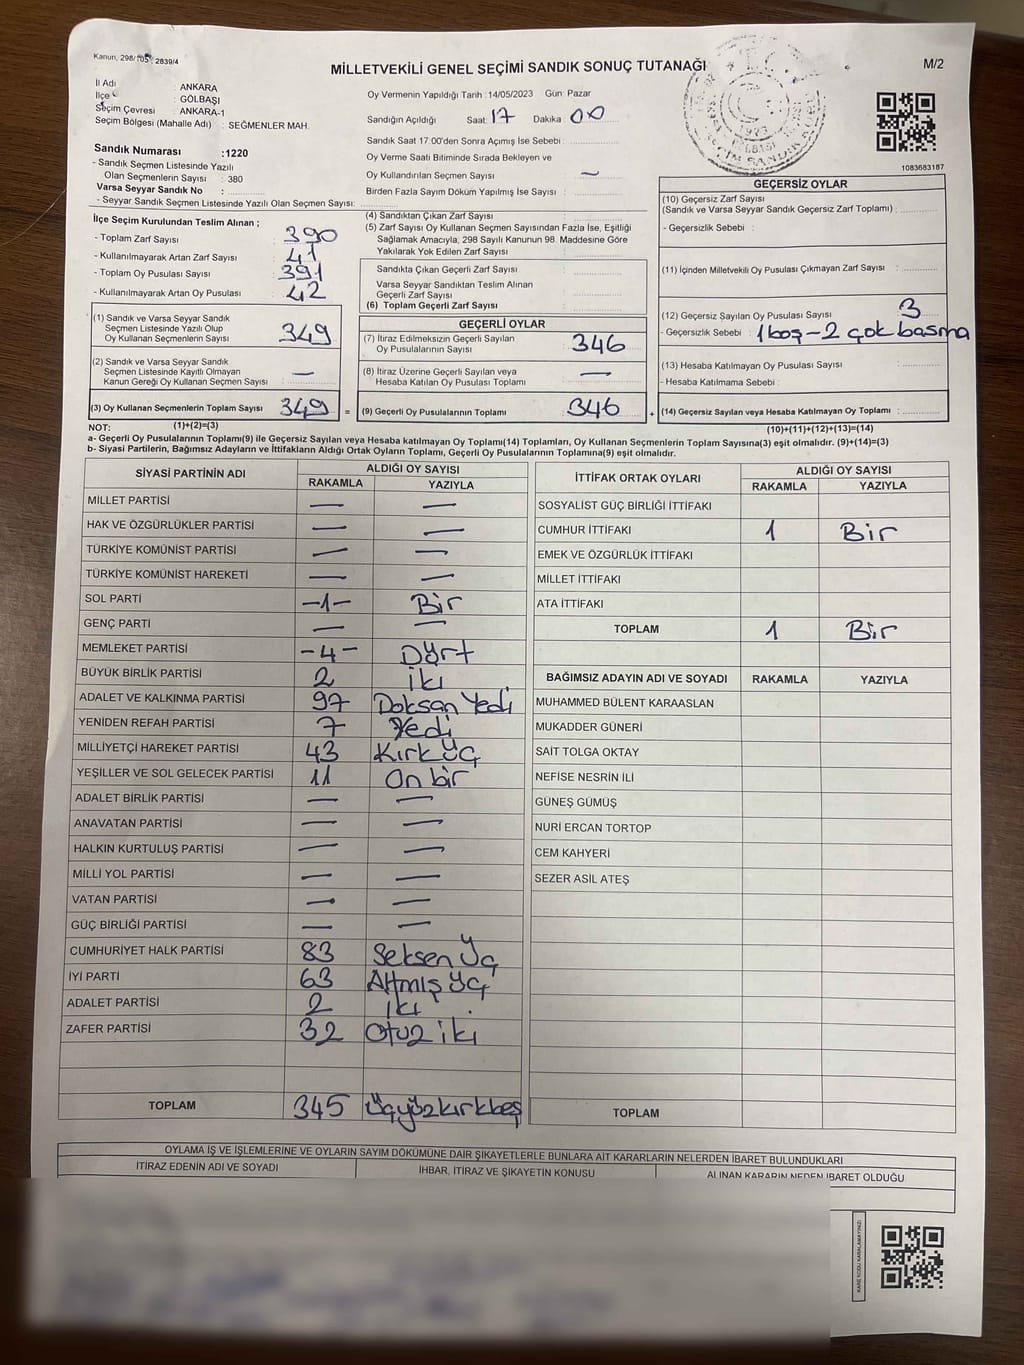 Kanun, 298/105 2839/4
MİLLETVEKİLİ GENEL SEÇİMİ SANDIK SONUÇ TUTANAĞI
M/2
İl Adı : ANKARA
İlçe : GÖLBAŞI
Seçim Çevresi : ANKARA-1
Seçim Bölgesi (Mahalle Adı) : SEĞMENLER MAH.
Sandık Numarası :1220
- Sandık Seçmen Listesinde Yazılı
Olan Seçmenlerin Sayısı : 380
Varsa Seyyar Sandık No :
- Seyyar Sandık Seçmen Listesinde Yazılı Olan Seçmen Sayısı:
Oy Vermenin Yapıldığı Tarih :14/05/2023 Gün: Pazar
Sandığın Açıldığı Saat: 17 Dakika : 00
Sandık Saat 17.00'den Sonra Açımış İse Sebebi :
Oy Verme Saati Bitiminde Sırada Bekleyen ve
Oy Kullandırılan Seçmen Sayısı : ~
Birden Fazla Sayım Döküm Yapılmış İse Sayısı :
1083683187
İlçe Seçim Kurulundan Teslim Alınan ;
- Toplam Zarf Sayısı : 390
- Kullanılmayarak Artan Zarf Sayısı : 41
- Toplam Oy Pusulası Sayısı : 391
- Kullanılmayarak Artan Oy Pusulası : 42
(1) Sandık ve Varsa Seyyar Sandık
Seçmen Listesinde Yazılı Olup
Oy Kullanan Seçmenlerin Sayısı : 349
(2) Sandık ve Varsa Seyyar Sandık
Seçmen Listesinde Kayıtlı Olmayan
Kanun Gereği Oy Kullanan Seçmen Sayısı : —
(3) Oy Kullanan Seçmenlerin Toplam Sayısı : 349 =
(4) Sandıktan Çıkan Zarf Sayısı :
(5) Zarf Sayısı Oy Kullanan Seçmen Sayısından Fazla İse, Eşitliği
Sağlamak Amacıyla; 298 Sayılı Kanunun 98. Maddesine Göre
Yakılarak Yok Edilen Zarf Sayısı :
Sandıkta Çıkan Geçerli Zarf Sayısı :
Varsa Seyyar Sandıktan Teslim Alınan
Geçerli Zarf Sayısı :
(6) Toplam Geçerli Zarf Sayısı :
GEÇERLİ OYLAR
(7) İtiraz Edilmeksizin Geçerli Sayılan
Oy Pusulalarının Sayısı : 346
(8) İtiraz Üzerine Geçerli Sayılan veya
Hesaba Katılan Oy Pusulası Toplamı : —
(9) Geçerli Oy Pusulalarının Toplamı : 346 +
GEÇERSİZ OYLAR
(10) Geçersiz Zarf Sayısı
(Sandık ve Varsa Seyyar Sandık Geçersiz Zarf Toplamı) :
- Geçersizlik Sebebi :
(11) İçinden Milletvekili Oy Pusulası Çıkmayan Zarf Sayısı :
(12) Geçersiz Sayılan Oy Pusulası Sayısı : 3
- Geçersizlik Sebebi : 1 boş - 2 çok basma
(13) Hesaba Katılmayan Oy Pusulası Sayısı :
- Hesaba Katılmama Sebebi :
(14) Geçersiz Sayılan veya Hesaba Katılmayan Oy Toplamı :
NOT: (1)+(2)=(3) (10)+(11)+(12)+(13)=(14)
a- Geçerli Oy Pusulalarının Toplamı(9) ile Geçersiz Sayılan veya Hesaba katılmayan Oy Toplamı(14) Toplamları, Oy Kullanan Seçmenlerin Toplam Sayısına(3) eşit olmalıdır. (9)+(14)=(3)
b- Siyasi Partilerin, Bağımsız Adayların ve İttifakların Aldığı Ortak Oyların Toplamı, Geçerli Oy Pusulalarının Toplamına(9) eşit olmalıdır.
SİYASİ PARTİNİN ADI ALDIĞI OY SAYISI
RAKAMLA YAZIYLA
MİLLET PARTİSİ — —
HAK VE ÖZGÜRLÜKLER PARTİSİ — —
TÜRKİYE KOMÜNİST PARTİSİ — —
TÜRKİYE KOMÜNİST HAREKETİ — —
SOL PARTİ -1- Bir
GENÇ PARTİ — —
MEMLEKET PARTİSİ -4- Dört
BÜYÜK BİRLİK PARTİSİ 2 İki
ADALET VE KALKINMA PARTİSİ 97 Doksan Yedi
YENİDEN REFAH PARTİSİ 7 Yedi
MİLLİYETÇİ HAREKET PARTİSİ 43 Kırk Üç
YEŞİLLER VE SOL GELECEK PARTİSİ 11 On bir
ADALET BİRLİK PARTİSİ — —
ANAVATAN PARTİSİ — —
HALKIN KURTULUŞ PARTİSİ — —
MİLLİ YOL PARTİSİ — —
VATAN PARTİSİ — —
GÜÇ BİRLİĞİ PARTİSİ — —
CUMHURİYET HALK PARTİSİ 83 Seksen Üç
İYİ PARTİ 63 Altmış Üç
ADALET PARTİSİ 2 İki
ZAFER PARTİSİ 32 Otuz iki
TOPLAM 345 Üçyüzkırkbeş
İTTİFAK ORTAK OYLARI ALDIĞI OY SAYISI
RAKAMLA YAZIYLA
SOSYALİST GÜÇ BİRLİĞİ İTTİFAKI
CUMHUR İTTİFAKI 1 Bir
EMEK VE ÖZGÜRLÜK İTTİFAKI
MİLLET İTTİFAKI
ATA İTTİFAKI
TOPLAM 1 Bir
BAĞIMSIZ ADAYIN ADI VE SOYADI RAKAMLA YAZIYLA
MUHAMMED BÜLENT KARAASLAN
MUKADDER GÜNERİ
SAİT TOLGA OKTAY
NEFİSE NESRİN İLİ
GÜNEŞ GÜMÜŞ
NURİ ERCAN TORTOP
CEM KAHYERİ
SEZER ASİL ATEŞ
TOPLAM
OYLAMA İŞ VE İŞLEMLERİNE VE OYLARIN SAYIM DÖKÜMÜNE DAİR ŞİKAYETLERLE BUNLARA AİT KARARLARIN NELERDEN İBARET BULUNDUKLARI
İTİRAZ EDENİN ADI VE SOYADI İHBAR, İTİRAZ VE ŞİKAYETİN KONUSU ALINAN KARARIN NEDEN İBARET OLDUĞU
KARE KODU KARALAMAYINIZ!